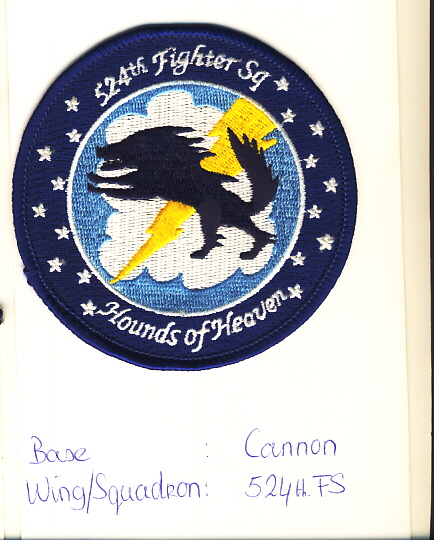 524th Fighter Sq
Hounds of Heaven
Base : Cannon
Wing/Squadron: 524th. FS